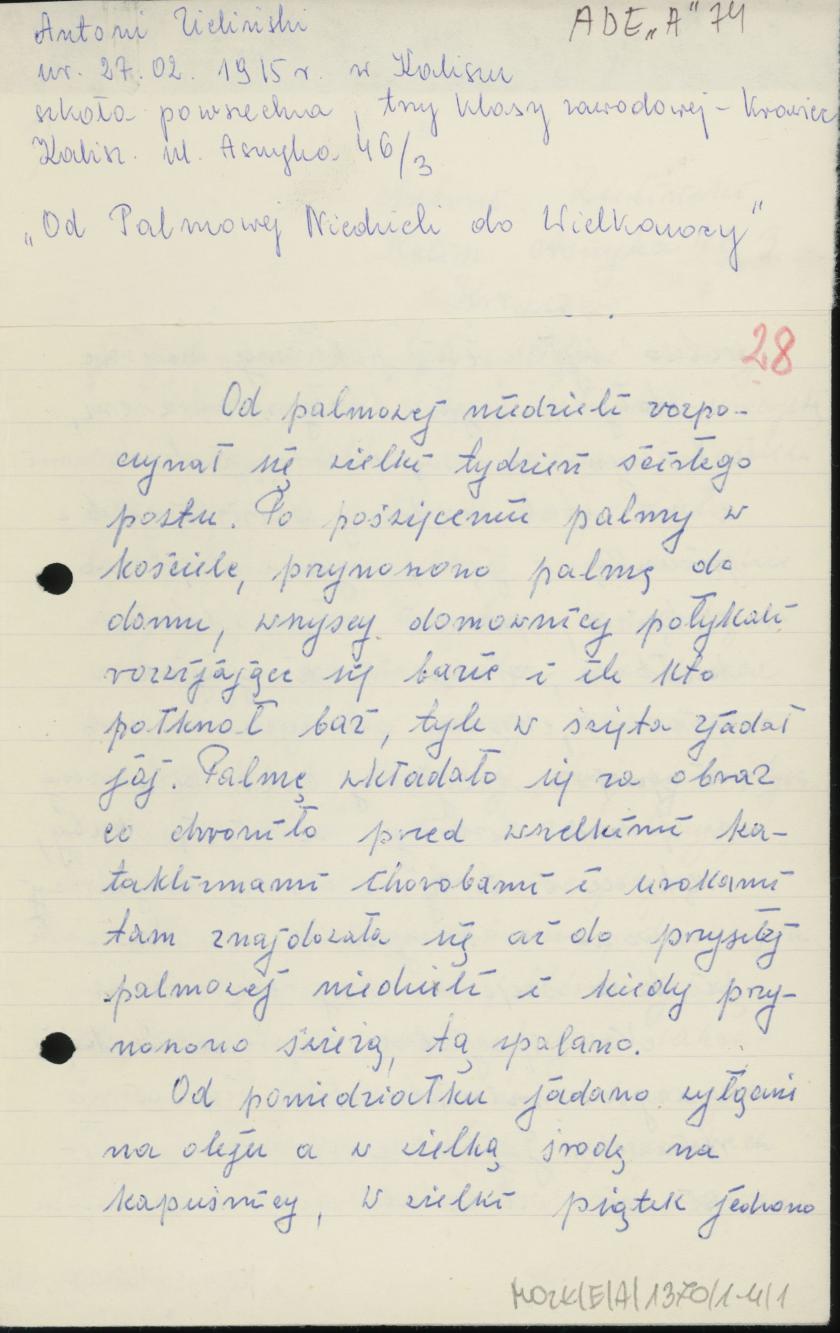 Antoni Zieliński
ADE „A" 74
ur. 27.02. 1915 r. w Kaliszu
szkoła powszechna, trzy klasy zawodowej – krawiec
Kalisz. ul. Asnyka 46/3
„Od Palmowej Niedzieli do Wielkanocy"
28
Od palmowej niedzieli rozpo-
czynał się wielki tydzień ścisłego
postu. Po poświęceniu palmy w
kościele, przynoszono palmę do
domu, wszyscy domownicy połykali
rozwijające się bazie i ile kto
połknoł baź, tyle w święta zjadał
jaj. Palmę wkładało się za obraz
co chroniło przed wszelkimi ka-
taklizmami chorobami i urokami
tam znajdowała się aż do przyszłej
palmowej niedzieli i kiedy przy-
noszono świeżą, tą spalano.
Od poniedziałku jadano wyłącznie
na oleju a w wielką środę na
kapuśnicy, w wielki piątek jedzono
MOZK/E/A/1370/1-4/1